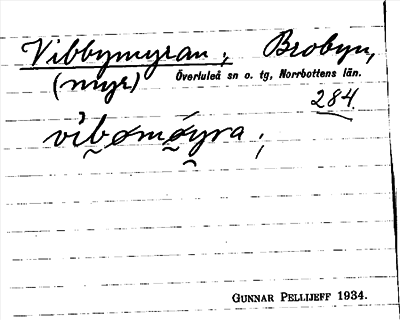 Vibbymyran; Brobyn,
(myr) Överluleå sn o. tg, Norrbottens län.
284.
vìb̬ømǿ̬yra;
GUNNAR PELLIJEFF 1934.